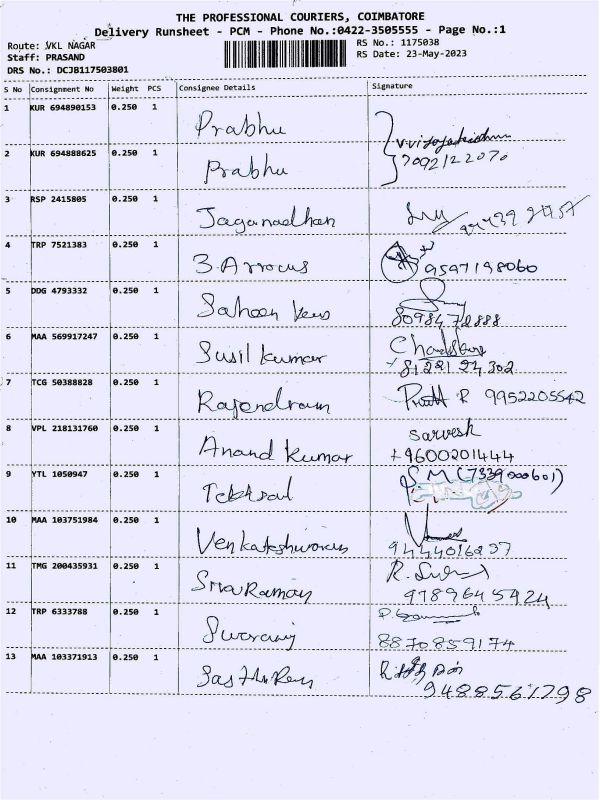 THE PROFESSIONAL COURIERS, COIMBATORE
Delivery Runsheet - PCM - Phone No.:0422-3505555 - Page No.:1
Route: VKL NAGAR RS No.: 1175038
Staff: PRASAND RS Date: 23-May-2023
DRS No.: DCJB117503801
S No Consignment No Weight PCS Consignee Details Signature
1 KUR 694890153 0.250 1 Prabhu
7092122070
2 KUR 694888625 0.250 1 Prabhu
3 RSP 2415805 0.250 1 Jaganadhan
4 TRP 7521383 0.250 1 3 Arrows 9597198060
5 DDG 4793332 0.250 1
8098472888
6 MAA 569917247 0.250 1 Susil kumar
8122124302
7 TCG 50388828 0.250 1 Rajendram R 9952205542
8 VPL 218131760 0.250 1 Anand Kumar Sarvesh
+9600201444
9 YTL 1050947 0.250 1 S.M (7339000601)
10 MAA 103751984 0.250 1
9444016237
11 TMG 200435931 0.250 1 Sivaraman
9789645424
12 TRP 6333788 0.250 1
8870859174
13 MAA 103371913 0.250 1
9488561798